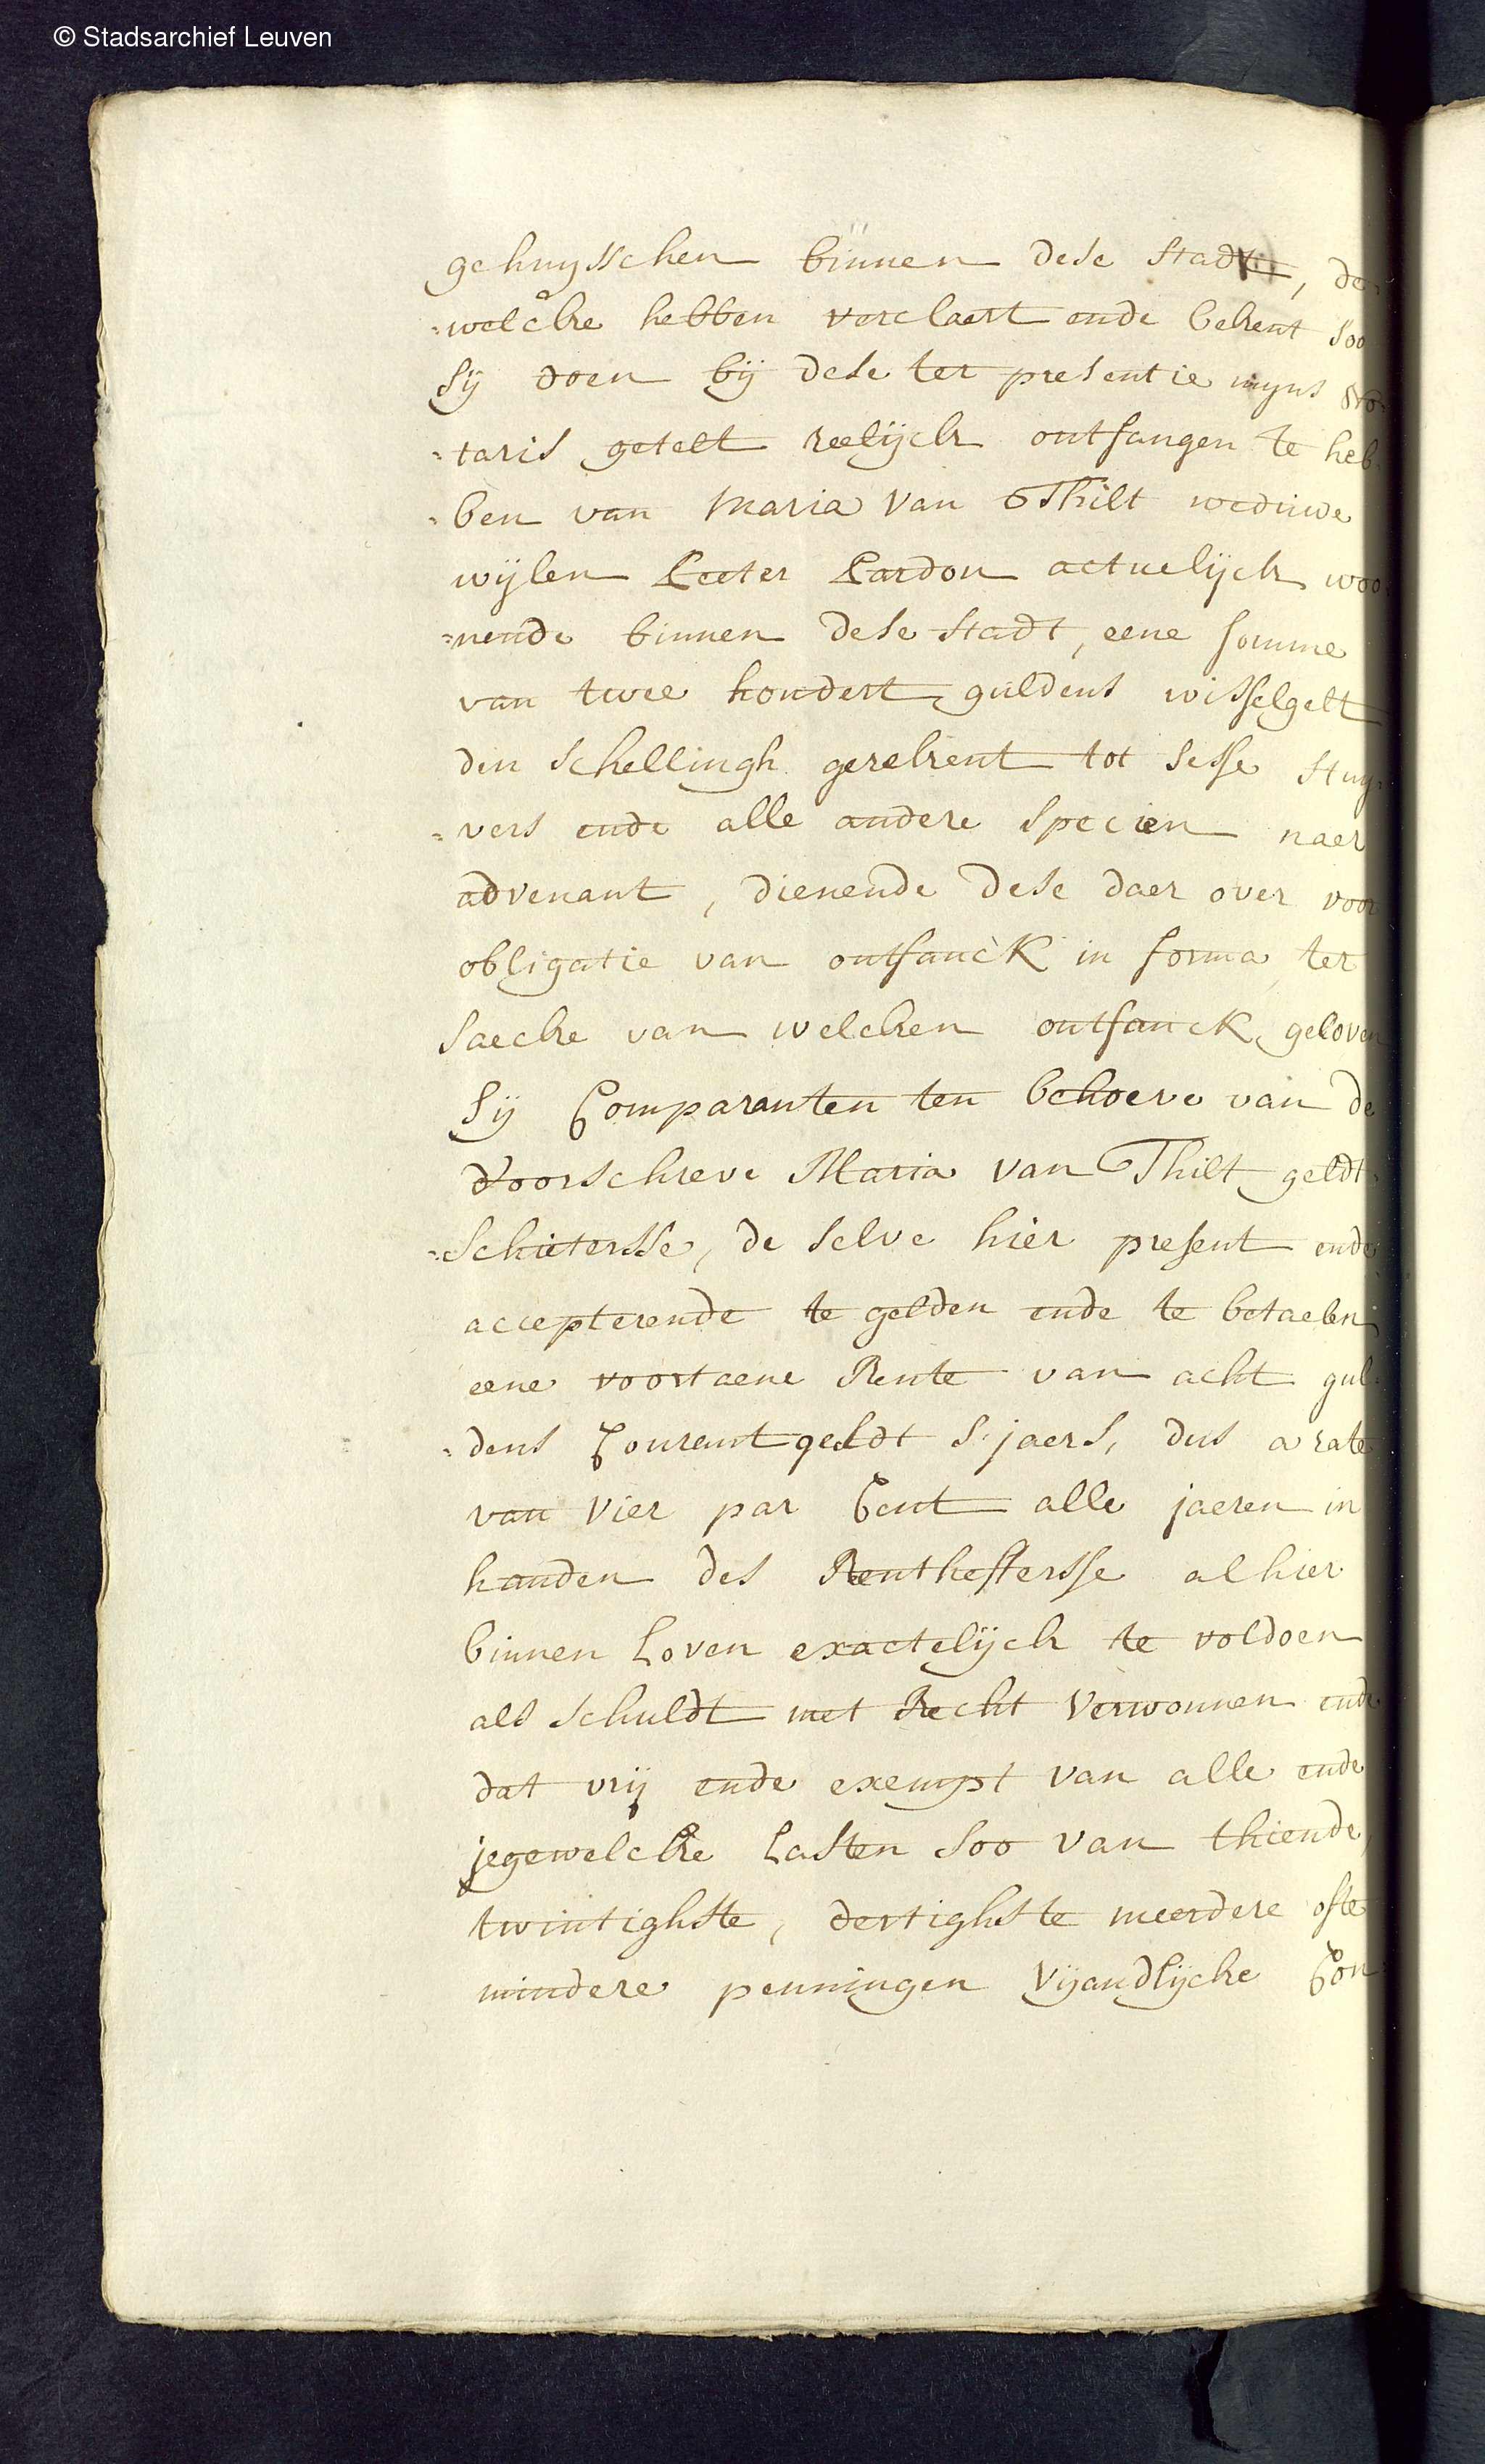 © Stadsarchief Leuven
gehuysschen binnen dese stadt, de=
=welcke hebben verclaert ende bekent soo
sij doen bij dese ter presentie myns No=
=taris getelt reelijck ontfangen te heb=
=ben van Maria Van Thilt weduwe
wijlen Peeter Pardon actuelijck woo=
=nende binnen dese stadt, eene somme
van twee hondert guldens wisselgelt
den schellingh gerekent tot sesse stuy=
=vers ende alle andere specien naer
advenant, dienende dese daer over voor
obligatie van ontfanck in forma, ter
saecke van welcken ontfanck geloven
sij Comparanten ten behoeve van de
voorschreve Maria van Thilt geldt=
=schietersse, de selve hier present ende
accepterende te gelden ende te betaelen
eene voortaene Rente van acht gul=
=dens Courant geldt s'jaers, dus a rate
van vier par Cent alle jaeren in
handen des Rentheffersse alhier
binnen Loven exactelijck te voldoen
als schuldt met Recht Verwonnen ende
dat vrij ende exempt van alle ende
jegewelcke Lasten soo van thiende,
twintighste, dertighste meerdere ofte
mindere penningen Vijandlijcke Con=